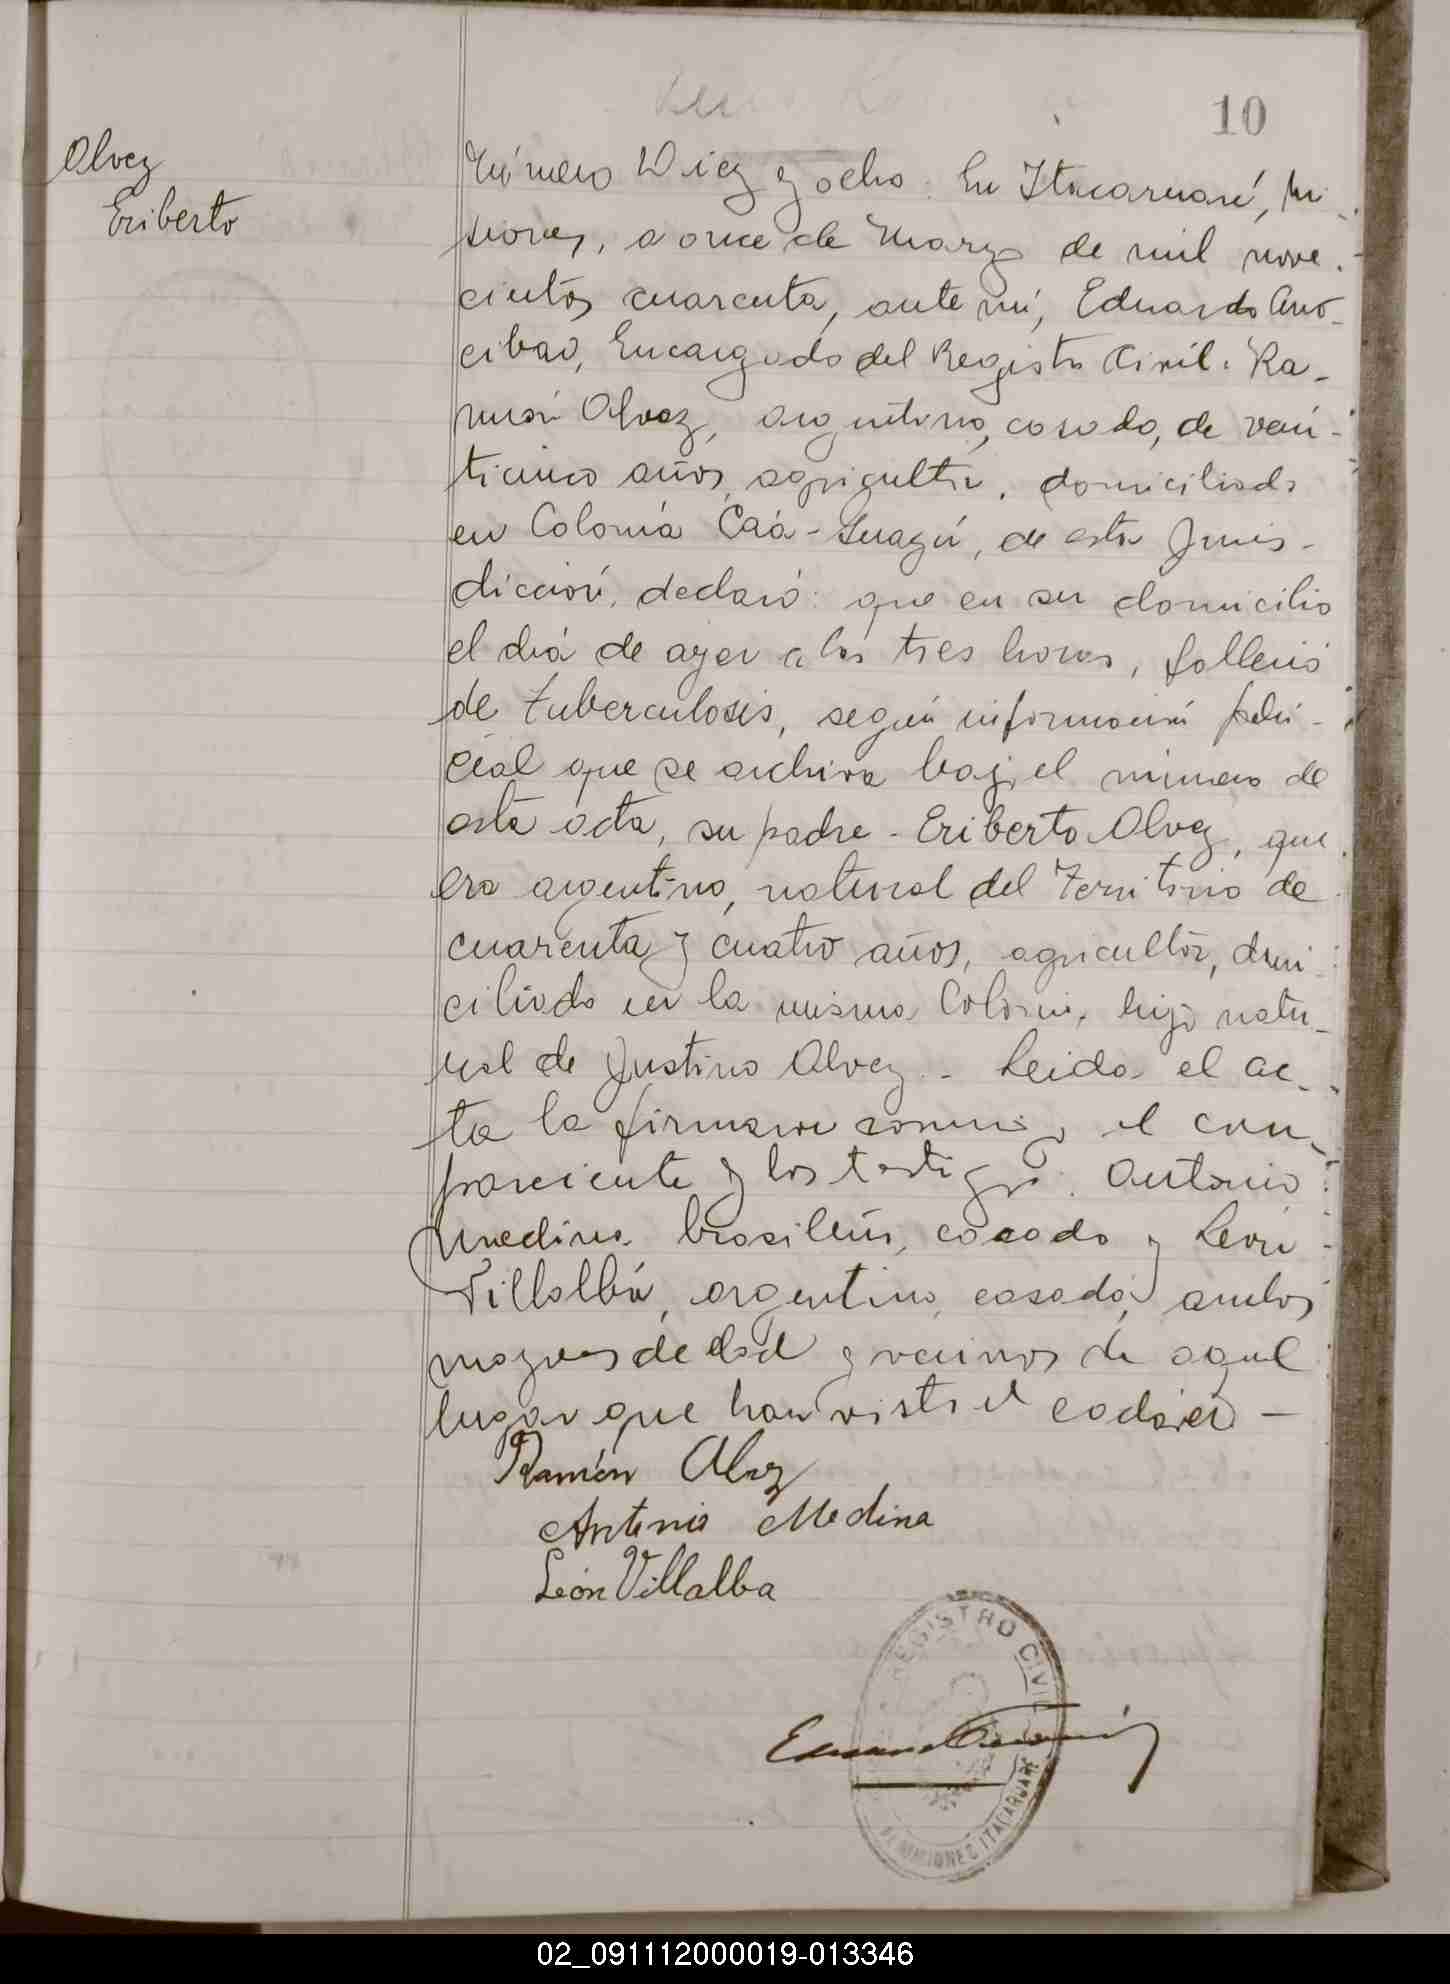 10
Alvez
Eriberto
Número Diez y ocho. En Itacaruaré, Mi-
siones, a once de Marzo de mil nove-
cientos cuarenta, ante mí, Eduardo
Encargado del Registro Civil: Ra-
món Alvez, argentino, casado, de vein-
ticinco años, agricultor, domiciliado
en Colonia Caá-Guazú, de esta Juris-
dicción, declaró: que en su domicilio
el día de ayer a las tres horas, falleció
de tuberculosis, según información poli-
cial que se archiva bajo el número de
esta acta, su padre - Eriberto Alvez, que
era argentino, natural del Territorio de
cuarenta y cuatro años, agricultor, domi-
ciliado en la misma Colonia, hijo natu-
ral de Justina Alvez - Leida el ac-
ta la firmaron conmigo el com-
pareciente y los testigos: Antonio
Medina brasileño, casado y León
Villalba, argentino, casado, ambos
mayores de edad y vecinos de aquel
lugar que han visto el cadáver —
Ramón Alvez
Antonio Medina
León Villalba
REGISTRO CIVIL
MISIONES ITACARUARE
02_091112000019-013346